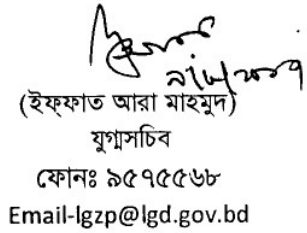 (ইফ্ফাত আরা মাহমুদ)
যুগ্মসচিব
ফোনঃ ৯৫৭৫৫৬৮
Email-lgzp@lgd.gov.bd